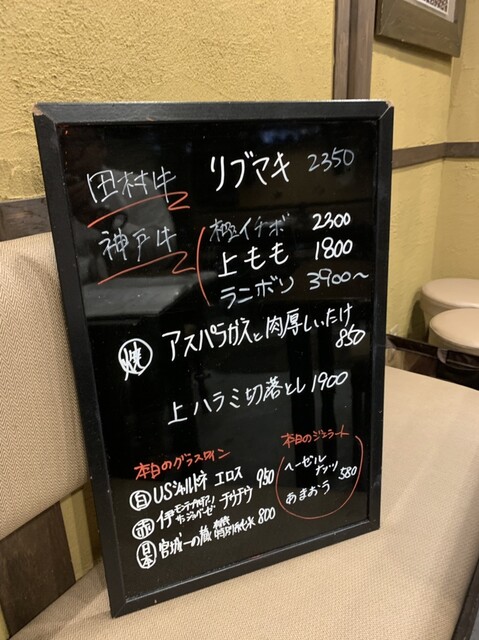 田村牛 リブマキ 2350
神戸牛 極イチボ 2300
上もも 1800
ランボソ 3900～
焼 アスパラガスと肉厚しいたけ
850
上ハラミ切落とし 1900
本日のグラスワイン
白 USシャルドネ エロス 950
赤 伊
日本 宮城一の蔵 特別純米 800
本日のジェラート
ヘーゼル
ナッツ 580
あまおう